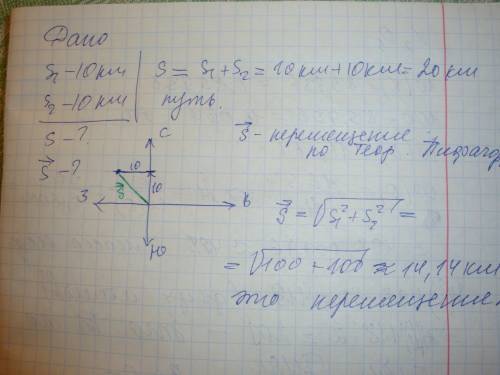 Дано
S₁ - 10 км
S₂ - 10 км
S - ?
S⃗ - ?
S = S₁ + S₂ = 10 км + 10 км = 20 км
путь.
С
10
10
S⃗
З
В
Ю
S⃗ - перемещение
по теор. Пифагор
S⃗ = √S₁² + S₂² =
= √100 + 100 ≈ 14,14 км
это перемещение.